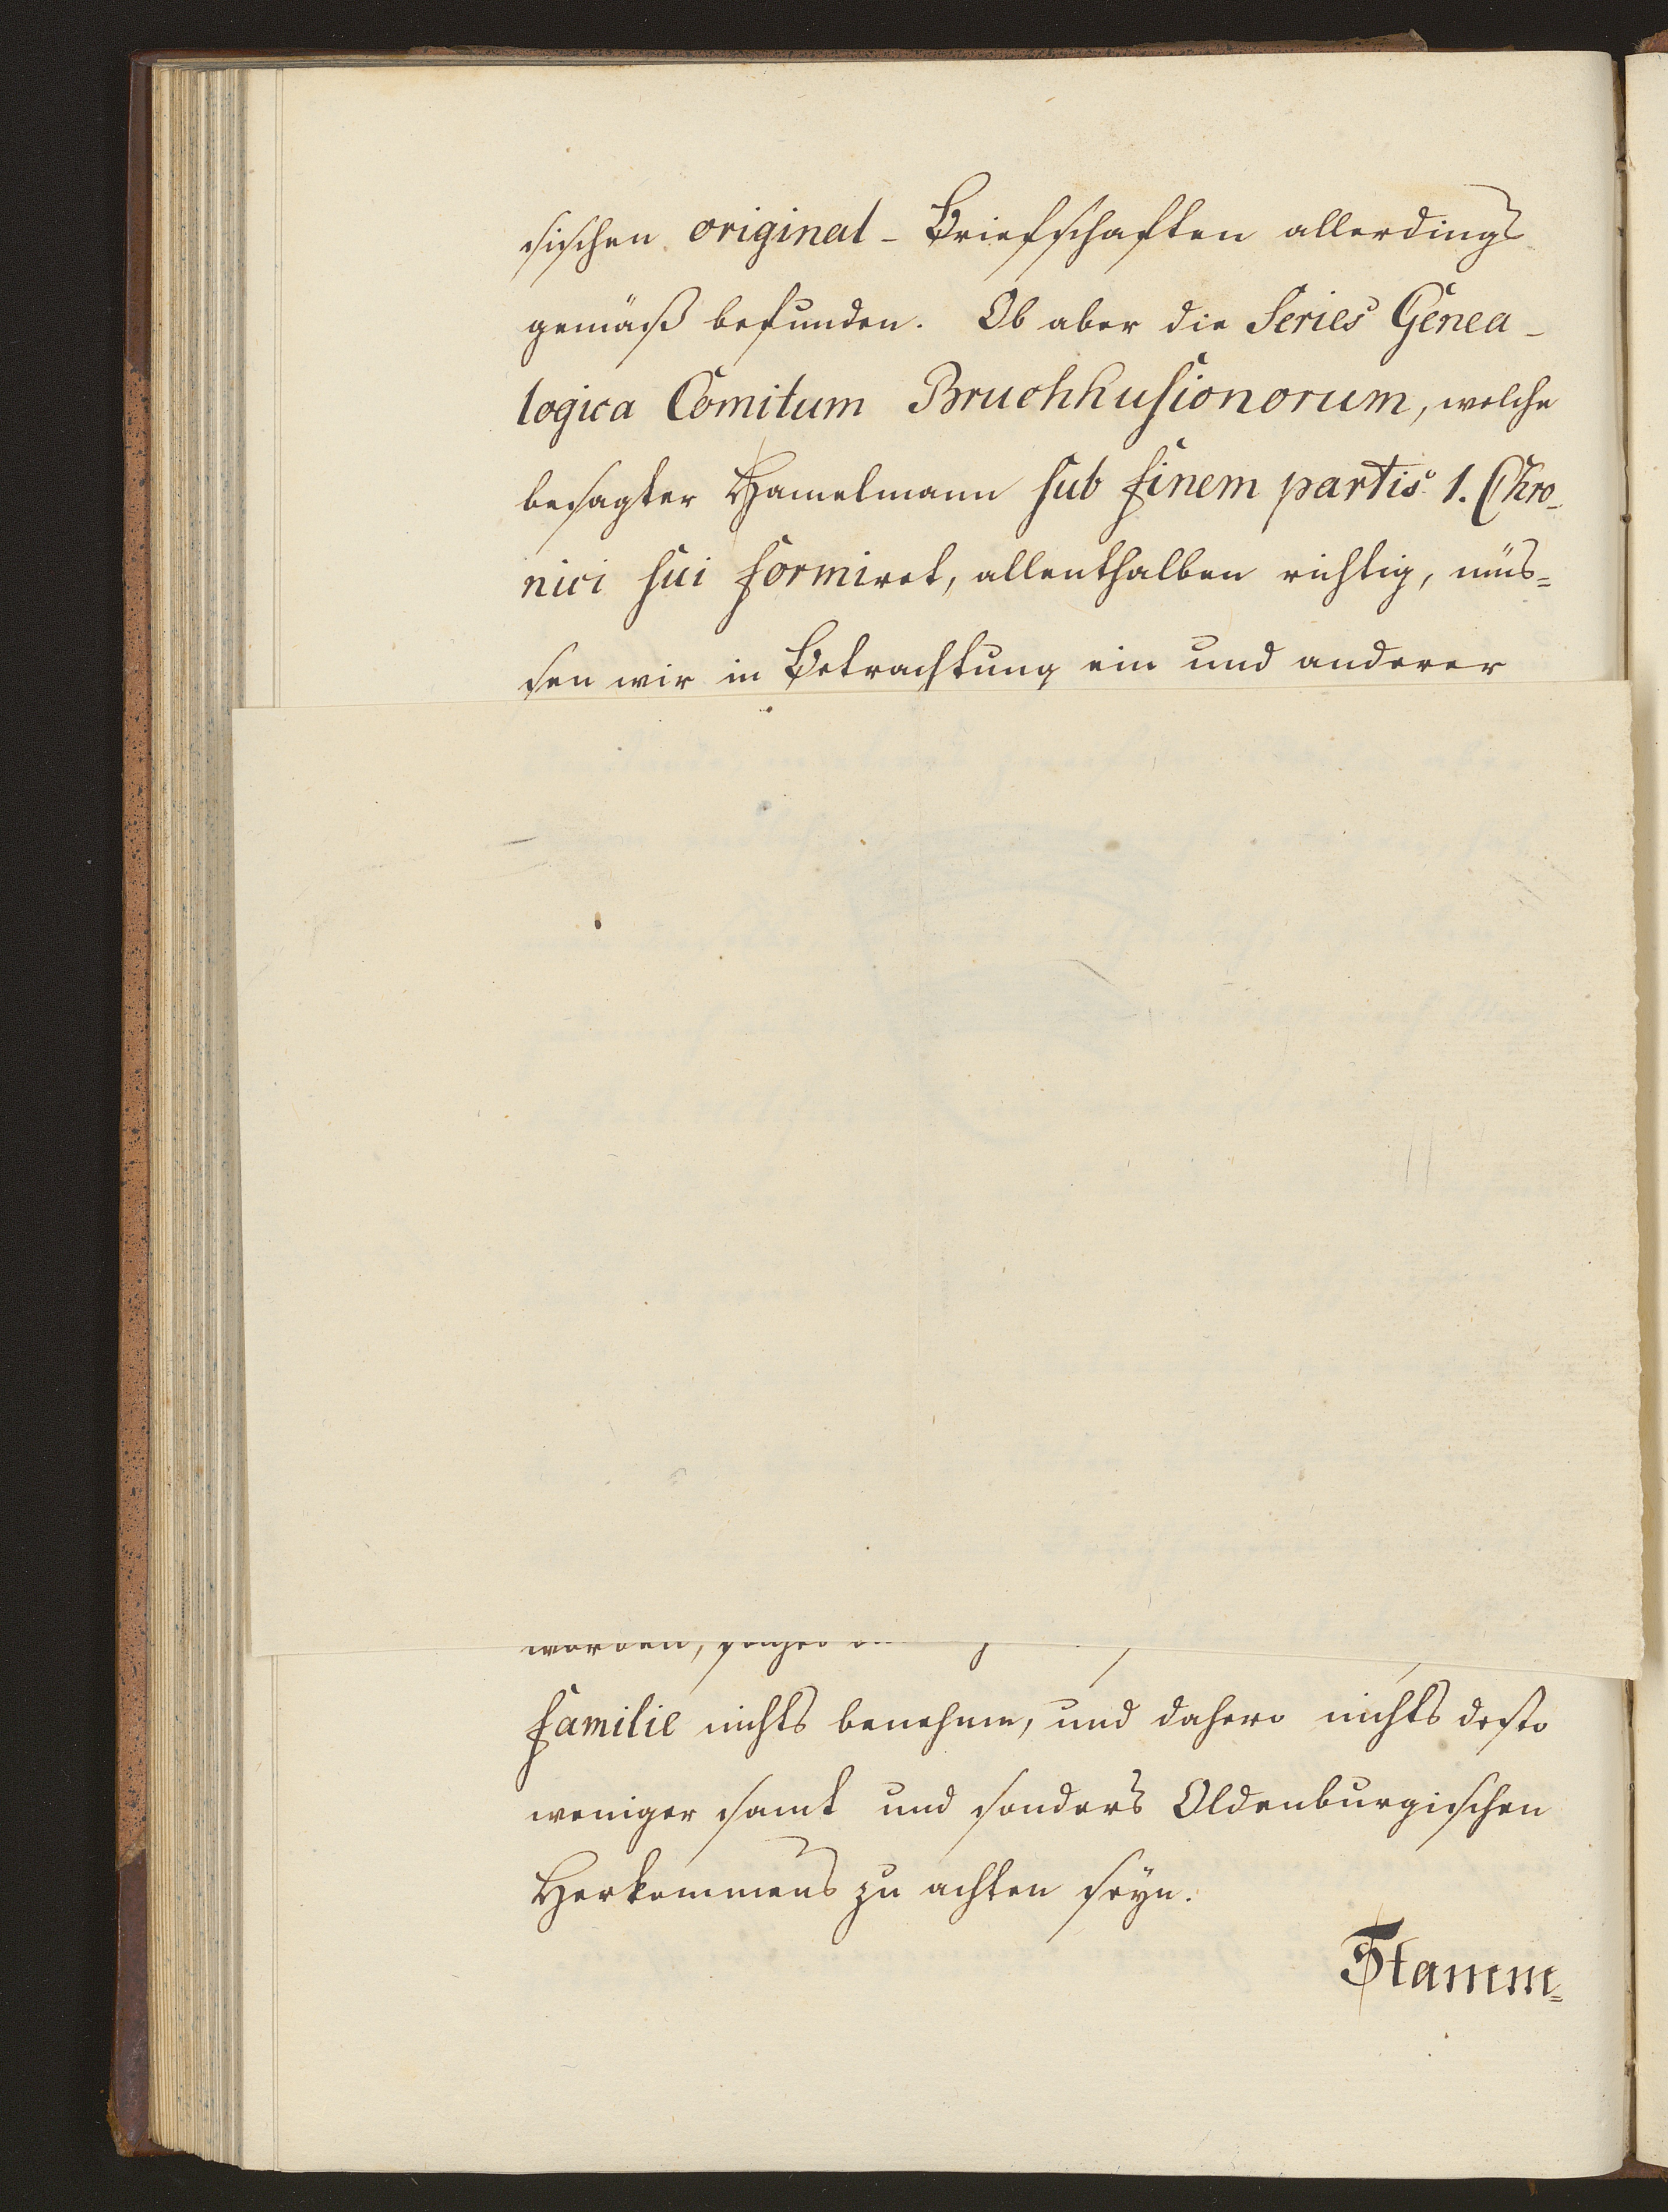 sischen original-Briefschafften allerdings
gemäß befunden. Ob aber die Series Genea-
logica Comitum Bruchhusionorum, welche
besagter Hamelmann sub finem partis 1. Chro-
nici sui formiret, allenthalben richtig, müs-
sen wir in Betrachtung ein und anderer
worden, solches
familie nichts benehme, und dahero nichts desto
weniger samt und sonders Oldenburgischen
Herkommens zu achten seyn.
Stamm-